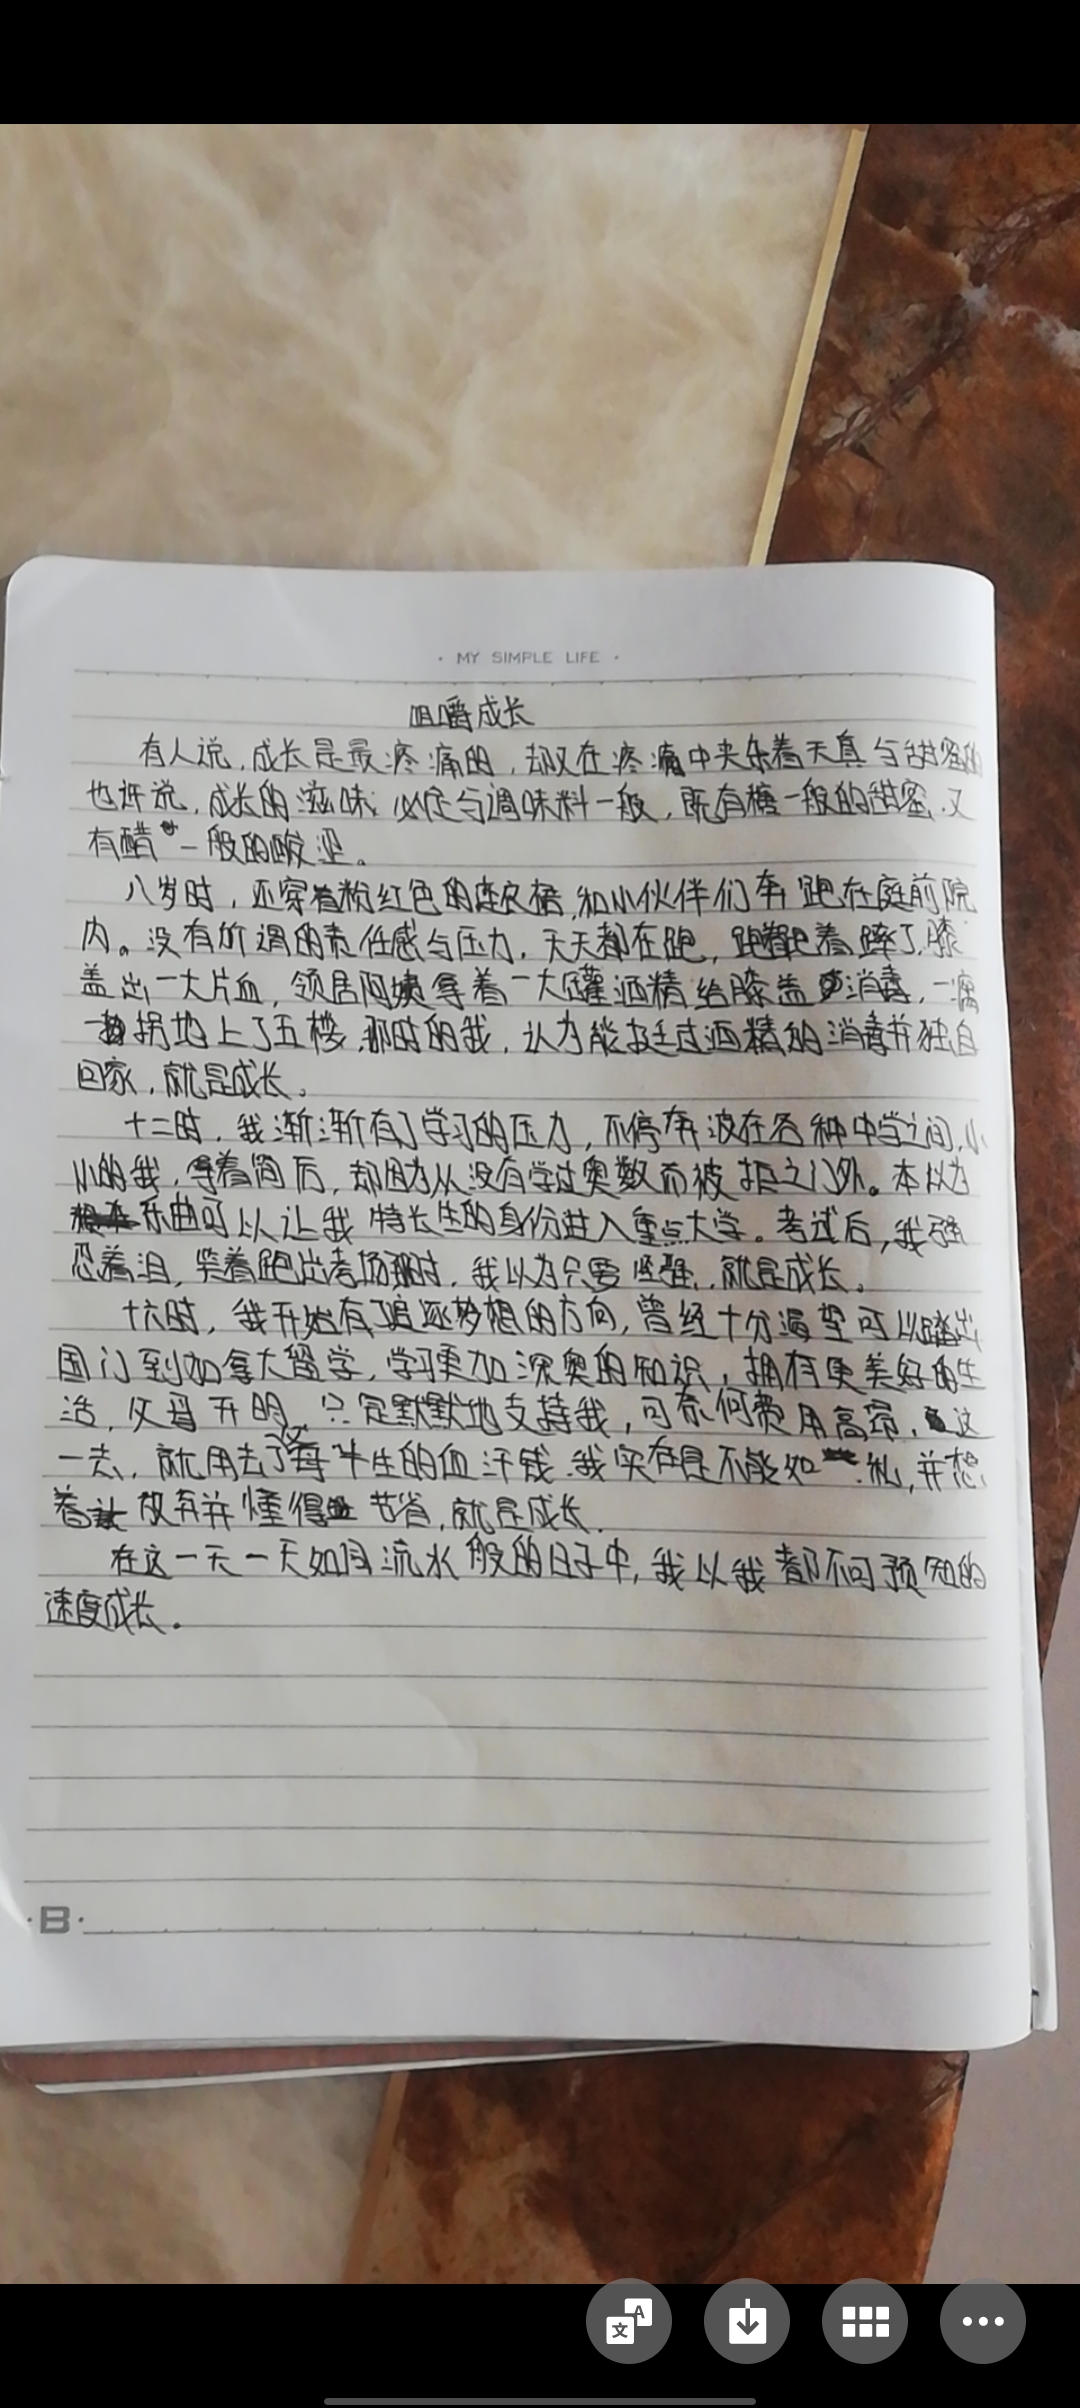 · MY SIMPLE LIFE ·
咀嚼成长
有人说,成长是最疼痛的,却又在疼痛中夹杂着天真与甜蜜的
也许说,成长的滋味,必定与调味料一般,既有糖一般的甜蜜,又
有醋一般的酸涩。
八岁时,还穿着粉红色的连衣裙,和小伙伴们奔跑在庭前院
内。没有所谓的责任感与压力,天天都在跑,跑着跑着蹭了膝
盖出一大片血,领居阿姨拿着一大罐酒精给膝盖消毒,一瘸
一拐地上了五楼,那时的我,认为能挺过酒精的消毒并独自
回家,就是成长。
十二时,我渐渐有了学习的压力,不停奔波在各种中学之间,小
小的我,拿着简历,却因为从没有学过奥数而被拒之门外。本以为
乐曲可以让我特长生的身份进入重点大学。考试后,我强
忍着泪,笑着跑出考场那时,我以为只要坚强,就是成长。
十六时,我开始有了追逐梦想的方向,曾经十分渴望可以踏出
国门到加拿大留学,学习更加深奥的知识,拥有更美好的生
活,父母开明,只是默默地支持我,可奈何费用高昂,这
一去,就用去了父母半生的血汗钱.我实在是不能如私,并想
着放弃并懂得节省,就是成长.
在这一天一天如同流水般的日子中,我以我都不可预知的
速度成长。
·B·